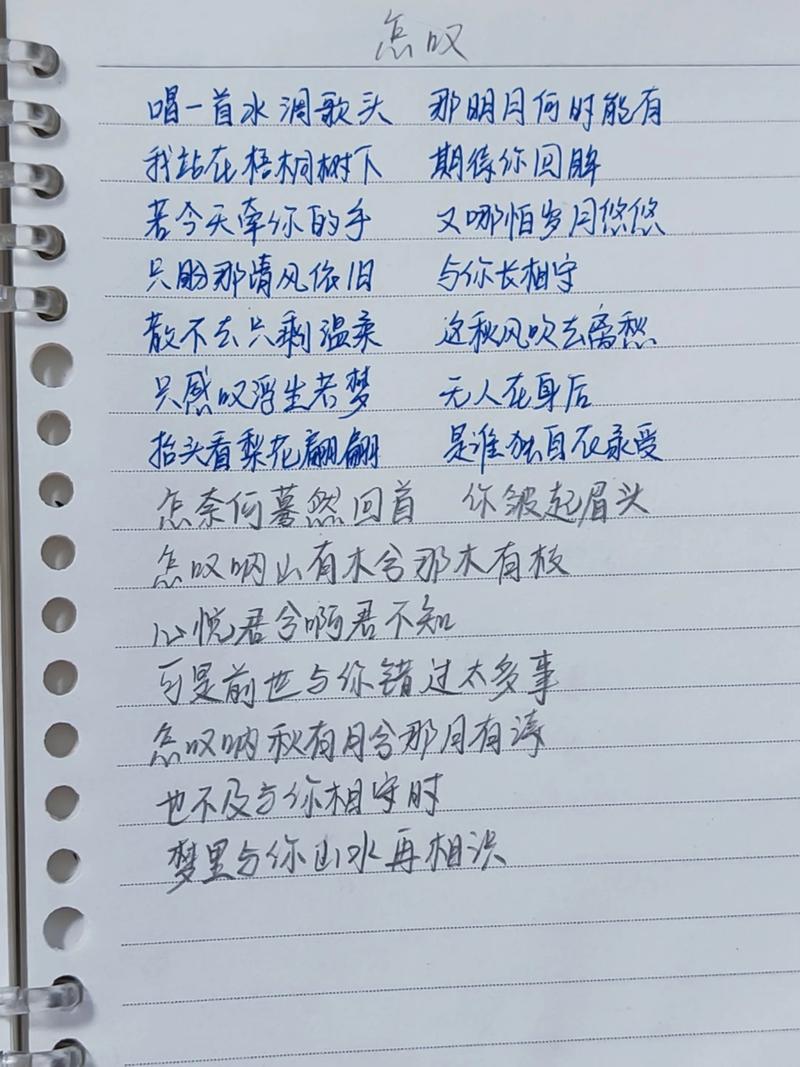 怎叹
唱一首水调歌头 那明月何时能有
我站在梧桐树下 期待你回眸
若今天牵你的手 又哪怕岁月悠悠
只盼那清风依旧 与你长相守
散不去只剩温柔 这秋风吹去离愁
只感叹浮生若梦 无人在身后
抬头看梨花翩翩 是谁独自在承受
怎奈何蓦然回首 你皱起眉头
怎叹呐山有木兮那木有枝
心悦君兮啊君不知
可是前世与你错过太多事
怎叹呐秋有月兮那月有诗
也不及与你相守时
梦里与你山水再相识